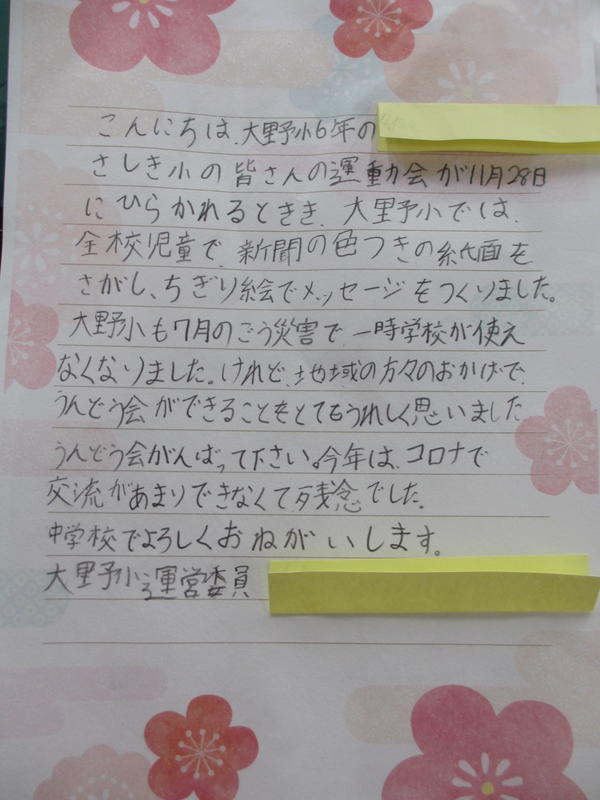 こんにちは、大野小6年の
さしき小の皆さんの運動会が11月28日
にひらかれるときき、大野小では、
全校児童で、新聞の色つきの紙面を
さがし、ちぎり絵でメッセージをつくりました。
大野小も7月のごう災害で、一時学校が使え
なくなりました。けれど、地域の方々のおかげで、
うんどう会ができることもとてもうれしく思いました
うんどう会がんばって下さい。今年は、コロナで
交流があまりできなくて残念でした。
中学校でよろしくおねがいします。
大野小運営委員